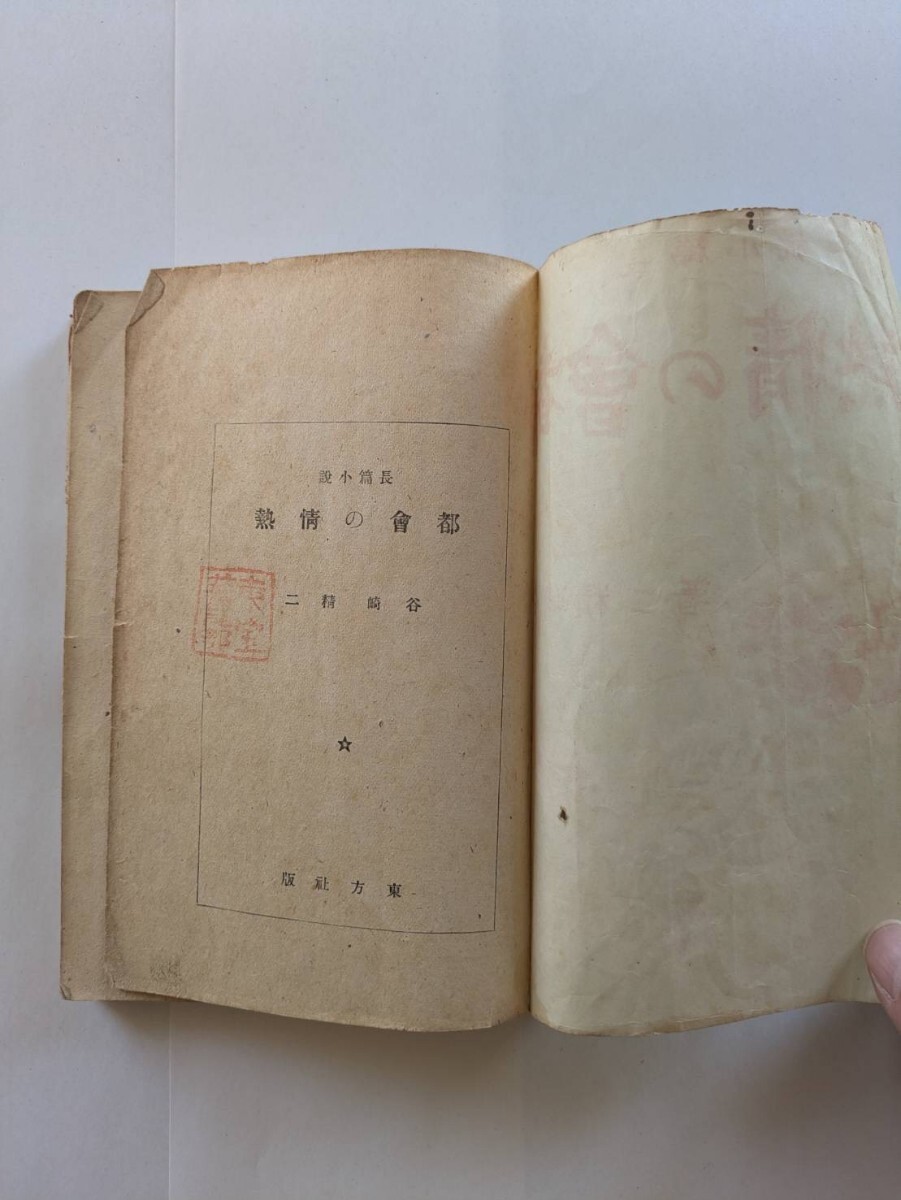 長篇小說
都會の情熱
谷崎精二
☆
東方社版